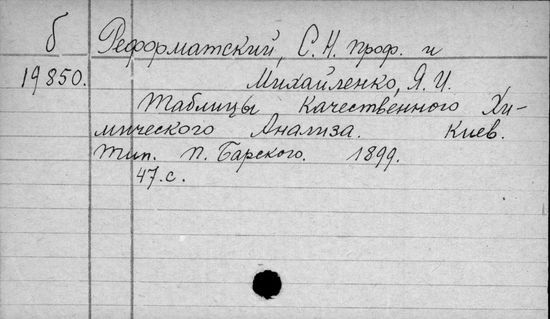 б
19850.
Реформатский, С. Н. проф. и
Михайленко, Я. И.
Таблицы Качественного Хи-
мического Анализа. Киев.
Тип. П. Барского. 1899.
47. с.